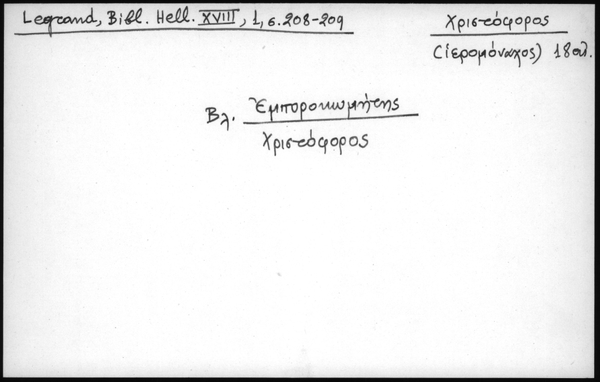 Legrand, Bibl. Hell. XVIII, 1, σ. 208-209
Χριστόφορος
(ἱερομόναχος) 18 αἰ.
Βλ. Ἐμποροκωμήτης
Χριστόφορος